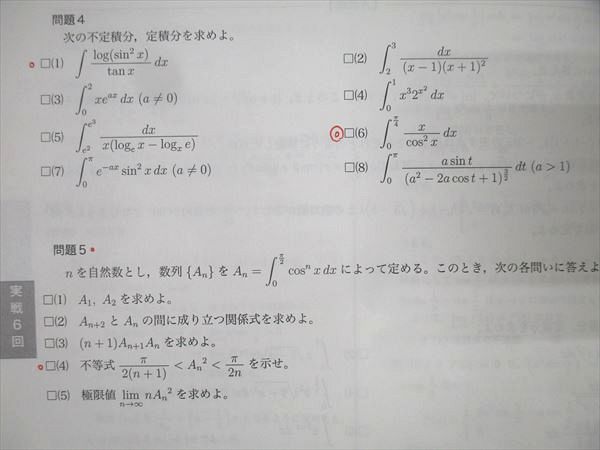 問題4
次の不定積分，定積分を求めよ。
□(1) ∫ log(sin² x)/tan x dx
□(2) ∫_2^3 dx/((x−1)(x+1)²)
□(3) ∫_0^2 xe^{ax} dx (a ≠ 0)
□(4) ∫_0^1 x³2^{x²} dx
□(5) ∫_{e²}^{e³} dx/(x(log_e x − log_x e))
□(6) ∫_0^{π/4} x/cos² x dx
□(7) ∫_0^π e^{−ax} sin² x dx (a ≠ 0)
□(8) ∫_0^π a sin t/(a² − 2a cos t + 1)^{3/2} dt (a > 1)
問題5
n を自然数とし，数列 {A_n} を A_n = ∫_0^{π/2} cos^n x dx によって定める。このとき，次の各問いに答えよ
□(1) A_1, A_2 を求めよ。
□(2) A_{n+2} と A_n の間に成り立つ関係式を求めよ。
□(3) (n+1)A_{n+1}A_n を求めよ。
□(4) 不等式 π/(2(n+1)) < A_n² < π/(2n) を示せ。
□(5) 極限値 lim_{n→∞} nA_n² を求めよ。
実戦6回